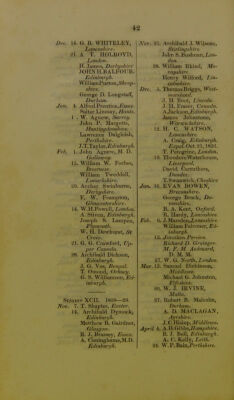 42
Dec. 14. G. B. WHITELEY,
Lancashire.
21. A. T. HOLROYD,
London.
H. James, Derbyshire
JOHN H. BALFOUR,
Edinburgh.
William Purton, Shropshire.
George D. Longstaff,
Durham.
Jan. 4. Alfred Prentice, Essex
Salter Livesay, Hants.
1. W. Agnew, Surrey.
John P. Margetts,
Huntingdonshire.
Lawrence Dalgleish,
Perthshire.
J. T. Taylor, Edinburgh.
Feb. 1. John Agnew, M. D.
Galloway.
15. William W. Forbes,
Inverness.
William Tweddell,
Lanarkshire.
10. Archer Swinburne,
Derbyshire.
F. W. Frampton,
Gloucestershire.
14. W. H. Powell, London
A. Stiven, Edinburgh.
Joseph S. Lampen,
Plymouth.
W. H. Dewhurst, St
Croix.
21. G. G. Crawford, Upper Canada.
28. Archibald Dickson,
Edinburgh.
J. G. Vos, Bengal.
T. Omond, Orkney.
G. S. Williamson, Edinburgh.
SESSION XCII. 1828—29.
Nov. 7. T. Shapter, Exeter.
14. Archibald Dymock,
Edinburgh.
Matthew B. Gairdner,
Glasgow.
B. J. Branney, Essex.
A. Cuninghame, M.D.
Edinburgh.
Nov. 21. Archibald J. Wilson,
Stirlingshire
John S. Bushnan, London.
28. William Rhind, Morayshire
Henry Wilford, Lincolnshire
Dec. 5. Thomas Briggs, Westmoreland.
J. H. Brett, Lincoln
J. H. Evans, Canada
S. Jackson, Edinburgh.
James Johnstone,
Warwickshire.
12. H. C. WATSON,
Lancashire
A. Craig, Edinburgh.
T. Peregrine, London
18. Theodore Waterhouse,
Liverpool.
David Carruthers,
Dundee.
T. Swanwick, Cheshire
Jan. 16. EVAN BOWEN,
Brecknock
George Brock, Devonshire.
B. A. Kent, Oxford.
R. Hardy, Lancashire
Feb. 6. J. Marsden, Lancashire
William Falconer, Edinburgh.
13. Jonathan Pereira
Richard D. Grainger.
M. F. M. Ackmuty,
D. M. M.
27. W. G. North, London
Mar. 13. Samuel Dickinson,
Middlesex
Michael G. Johnston,
Elfshire.
20. W. J. IRVINE,
Malta.
27. Robert B. Malcolm,
Durham.
A. D. MACLAGAN,
Ayrshire.
J. C. Hislop, Middlesex.
April 4. A. B. Gibbs, Hampshire
R. J. Bell, Edinburgh.
A. C. Kelly, Leith.
10. W. P. Bain, Perthshire.